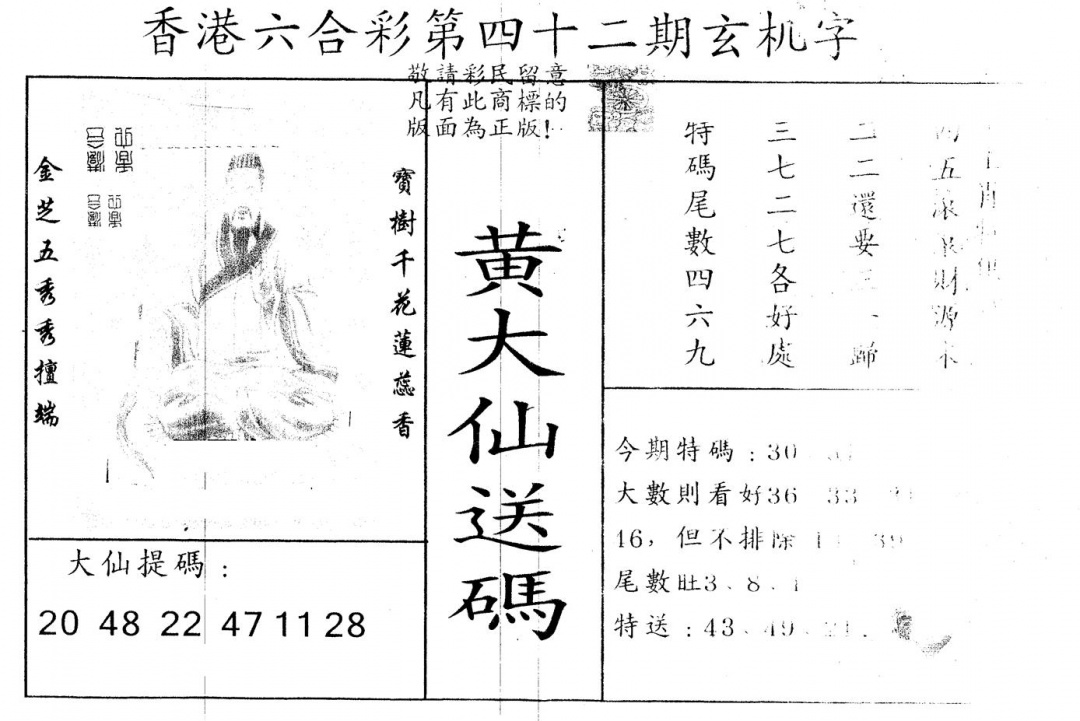 香港六合彩第四十二期玄机字
敬請彩民留意
凡有此商標的
版面為正版!
金芝五秀秀擅端
寶樹千花蓮蕊香
黄大仙送碼
大仙提碼:
20 48 22 47 11 28
五 財源
二二還要三 歸
三七二七各好處
特碼尾數四六九
今期特碼:30
大數則看好36 33
16,但不排除 39
尾數旺3、8、1
特送:43、49、21.